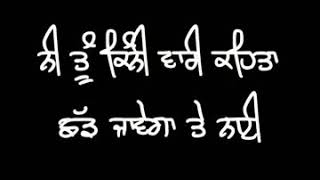 ਨੀ ਤੂੰ ਕਿੰਨੀ ਵਾਰੀ ਕਹਿਤਾ
ਛੱਡ ਜਾਵੇਗਾ ਤੇ ਨਈ